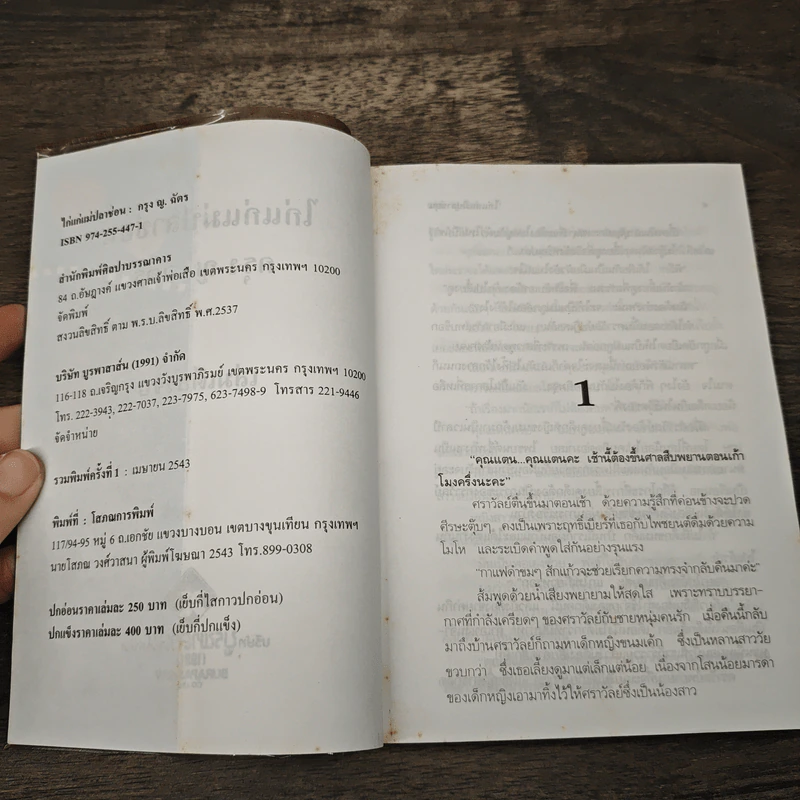 ไก่แก่แม่ปลาช่อน : กรุง ญ. ฉัตร
ISBN 974-255-447-1
สำนักพิมพ์ศิลปาบรรณาคาร
84 ถ.อัษฎางค์ แขวงศาลเจ้าพ่อเสือ เขตพระนคร กรุงเทพฯ 10200
จัดพิมพ์
สงวนลิขสิทธิ์ ตาม พ.ร.บ.ลิขสิทธิ์ พ.ศ.2537
บริษัท บูรพาสาส์น (1991) จำกัด
116-118 ถ.เจริญกรุง แขวงวังบูรพาภิรมย์ เขตพระนคร กรุงเทพฯ 10200
โทร. 222-3943, 222-7037, 223-7975, 623-7498-9 โทรสาร 221-9446
จัดจำหน่าย
รวมพิมพ์ครั้งที่ 1 : เมษายน 2543
พิมพ์ที่ : โสภณการพิมพ์
117/94-95 หมู่ 6 ถ.เอกชัย แขวงบางบอน เขตบางขุนเทียน กรุงเทพฯ
นายโสภณ วงศ์วาสนา ผู้พิมพ์โฆษณา 2543 โทร.899-0308
ปกอ่อนราคาเล่มละ 250 บาท (เย็บกี่ไสกาวปกอ่อน)
ปกแข็งราคาเล่มละ 400 บาท (เย็บกี่ปกแข็ง)
1
"คุณแตน...คุณแตนคะ เช้านี้ต้องขึ้นศาลสืบพยานตอนเก้า
โมงครึ่งนะคะ"
ศราวัลย์ตื่นขึ้นมาตอนเช้า ด้วยความรู้สึกที่ค่อนข้างจะปวด
ศีรษะตุ๊บๆ คงเป็นเพราะฤทธิ์เบียร์ที่เธอกับไพชยนต์ดื่มด้วยความ
โมโห และระเบิดคำพูดใส่กันอย่างรุนแรง
"กาแฟดำขมๆ สักแก้วจะช่วยเรียกความทรงจำกลับคืนมาค่ะ"
ส้มพูดด้วยน้ำเสียงพยายามให้สดใส เพราะทราบบรรยา-
กาศที่กำลังเครียดๆ ของศราวัลย์กับชายหนุ่มคนรัก เมื่อคืนนี้กลับ
มาถึงบ้านศราวัลย์ก็ถามหาเด็กหญิงขนมเค้ก ซึ่งเป็นหลานสาววัย
ขวบกว่า ซึ่งเธอเลี้ยงดูมาแต่เล็กแต่น้อย เนื่องจากโสนน้อยมารดา
ของเด็กหญิงเอามาทิ้งไว้ให้ศราวัลย์ซึ่งเป็นน้องสาว